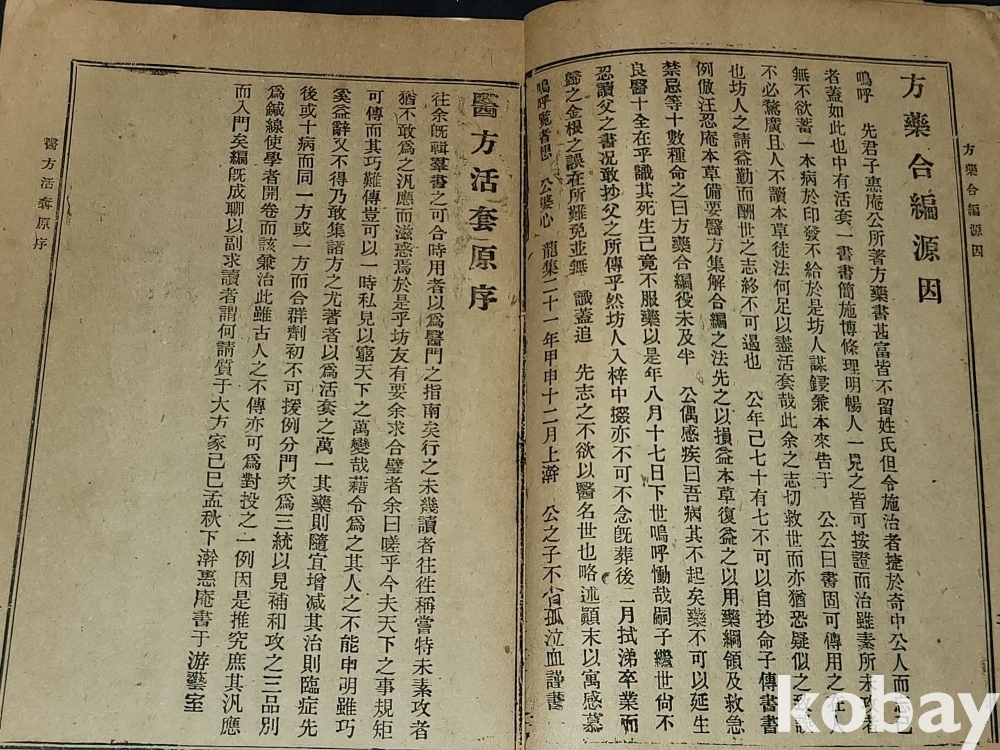 方藥合編源因
嗚呼 先君子惠庵公所著方藥書甚富皆不留姓氏但令施治者捷於奇中公人而
者蓋如此也中有活套一書書簡施博條理明暢人一見之皆可按證而治雖素所未攻者
無不欲蓄一本病於印發不給於是坊人謀鋟兼本來告于 公公曰書固可傳用之
不必騖廣且人不讀本草徒法何足以盡活套哉此余之志切救世而亦猶恐疑似之
也坊人之請益勤而酬世之志終不可遏也 公年已七十有七不可以自抄命子傳書書
例倣汪忍庵本草備要醫方集解合編之法先之以損益本草復益之以用藥綱領及救急
禁忌等十數種命之曰方藥合編役未及半 公偶感疾曰吾病其不起矣藥不可以延生
良醫十全在乎識其死生已竟不服藥以是年八月十七日下世嗚呼慟哉嗣子繼世尙不
忍讀父之書况敢抄父之所傳乎然坊人入梓中掇亦不可不念旣葬後二月拭涕卒業而
歸之金根之誤在所難免並無 識蓋追 先志之不欲以醫名世也略述顚末以寓感慕
嗚呼覽者想 公婆心 龍集二十一年甲申十二月上澣 公之子不肖孤泣血謹書
方藥合編源因
醫方活套原序
往余旣輯羣書之可合時用者以爲醫門之指南矣行之未幾讀者往往稱嘗特未素攻者
猶不敢爲之汎應而滋惑焉於是乎坊友有要余求合璧者余曰嗟乎今夫天下之事規矩
可傳而其巧難傳豈可以一時私見以窮天下之萬變哉藉令爲之其人之不能申明雖巧
奚益辭又不得乃敢集諸方之尤著者以爲活套之萬一其藥則隨宜增减其治則臨症先
後或十病而同一方或一方而合群劑初不可援例分門次爲三統以見補和攻之三品別
爲鍼線使學者開卷而該兼治此雖古人之不傳亦可爲對投之一例因是推究庶其汎應
而入門矣編旣成聊以副求讀者謂何請質于大方家己巳孟秋下澣惠庵書于游藝室
醫方活套原序
kobay